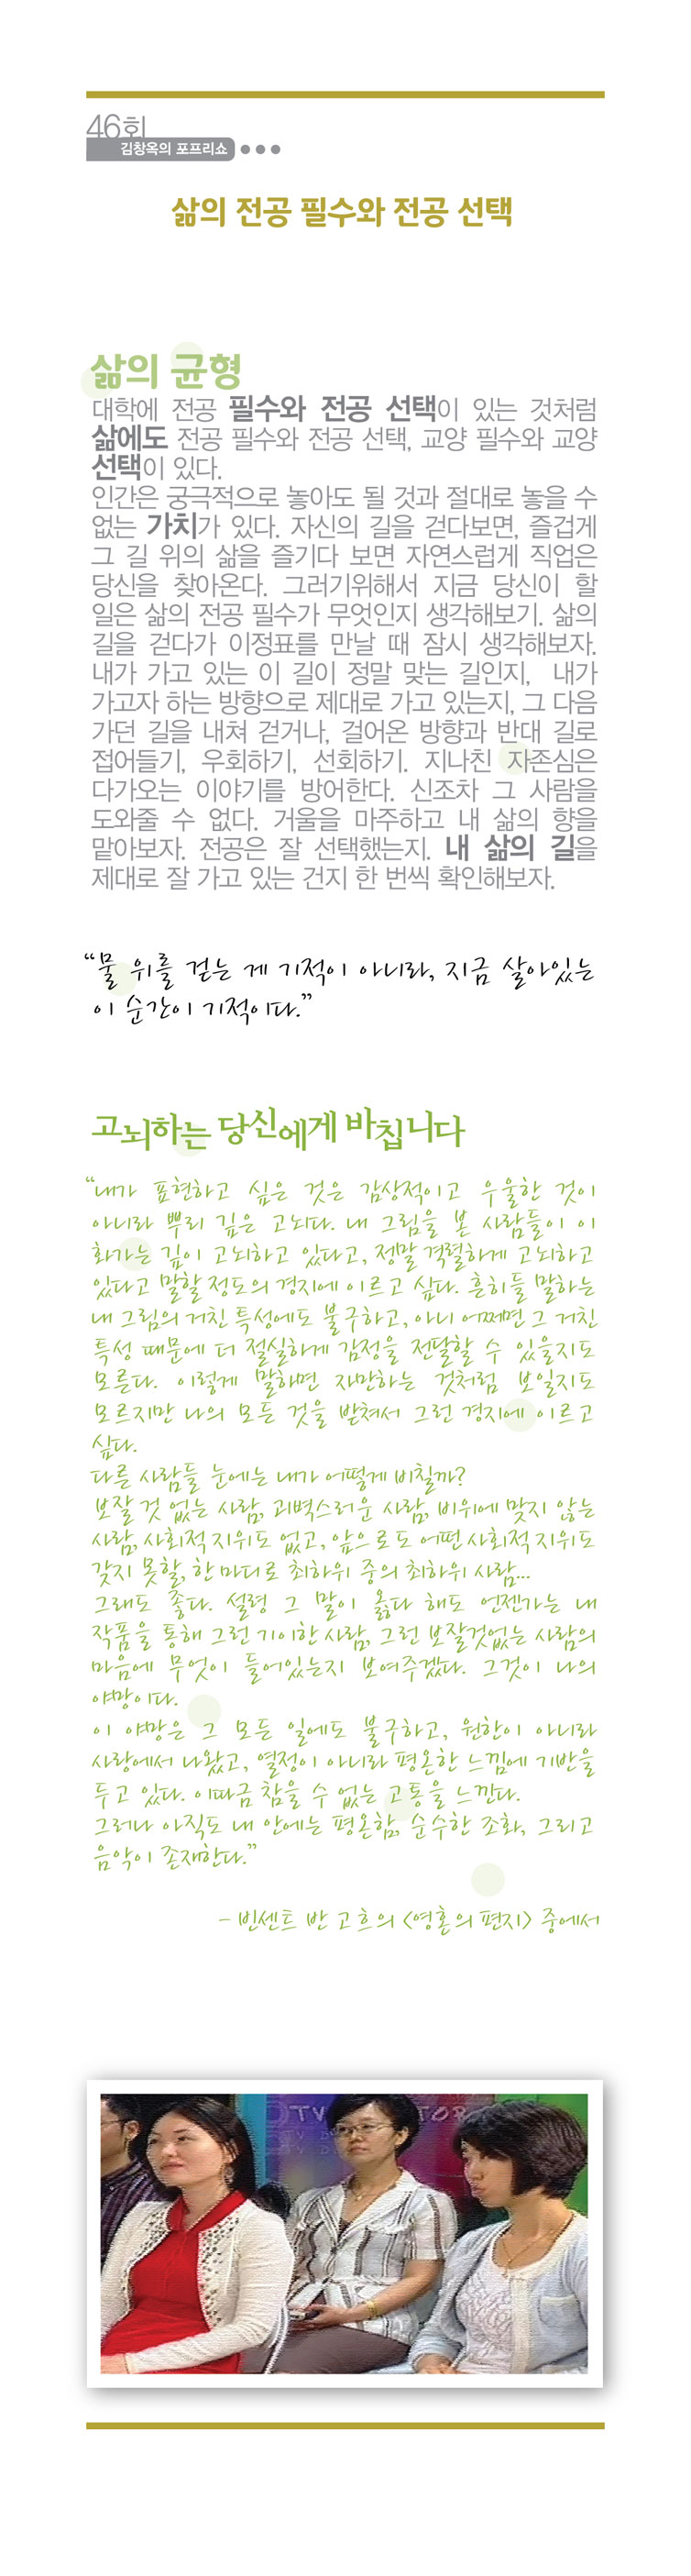 46회
김창옥의 포프리쇼
삶의 전공 필수와 전공 선택
삶의 균형
대학에 전공 필수와 전공 선택이 있는 것처럼
삶에도 전공 필수와 전공 선택, 교양 필수와 교양
선택이 있다.
인간은 궁극적으로 놓아도 될 것과 절대로 놓을 수
없는 가치가 있다. 자신의 길을 걷다보면, 즐겁게
그 길 위의 삶을 즐기다 보면 자연스럽게 직업은
당신을 찾아온다. 그러기위해서 지금 당신이 할
일은 삶의 전공 필수가 무엇인지 생각해보기. 삶의
길을 걷다가 이정표를 만날 때 잠시 생각해보자.
내가 가고 있는 이 길이 정말 맞는 길인지, 내가
가고자 하는 방향으로 제대로 가고 있는지, 그 다음
가던 길을 내쳐 걷거나, 걸어온 방향과 반대 길로
접어들기, 우회하기, 선회하기. 지나친 자존심은
다가오는 이야기를 방어한다. 신조차 그 사람을
도와줄 수 없다. 거울을 마주하고 내 삶의 향을
맡아보자. 전공은 잘 선택했는지. 내 삶의 길을
제대로 잘 가고 있는 건지 한 번씩 확인해보자.
“물 위를 걷는 게 기적이 아니라, 지금 살아있는
이 순간이 기적이다.”
고뇌하는 당신에게 바칩니다
“내가 표현하고 싶은 것은 감상적이고 우울한 것이
아니라 뿌리 깊은 고뇌다. 내 그림을 본 사람들이 이
화가는 깊이 고뇌하고 있다고, 정말 격렬하게 고뇌하고
있다고 말할 정도의 경지에 이르고 싶다. 흔히들 말하는
내 그림의 거친 특성에도 불구하고, 아니 어쩌면 그 거친
특성 때문에 더 절실하게 감정을 전달할 수 있을지도
모른다. 이렇게 말하면 자만하는 것처럼 보일지도
모르지만 나의 모든 것을 받쳐서 그런 경지에 이르고
싶다.
다른 사람들 눈에는 내가 어떻게 비칠까?
보잘 것 없는 사람, 괴벽스러운 사람, 비위에 맞지 않는
사람, 사회적 지위도 없고, 앞으로도 어떤 사회적 지위도
갖지 못할, 한 마디로 최하위 중의 최하위 사람...
그래도 좋다. 설령 그 말이 옳다 해도 언젠가는 내
작품을 통해 그런 기이한 사람, 그런 보잘것없는 사람의
마음에 무엇이 들어있는지 보여주겠다. 그것이 나의
야망이다.
이 야망은 그 모든 일에도 불구하고, 원한이 아니라
사랑에서 나왔고, 열정이 아니라 평온한 느낌에 기반을
두고 있다. 이따금 참을 수 없는 고통을 느낀다.
그러나 아직도 내 안에는 평온함, 순수한 조화, 그리고
음악이 존재한다.”
- 빈센트 반 고흐의 <영혼의 편지> 중에서
TV
TOR